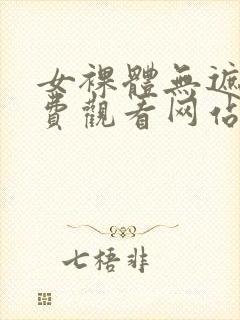 女裸體無遮
費觀看网佔
七梧非